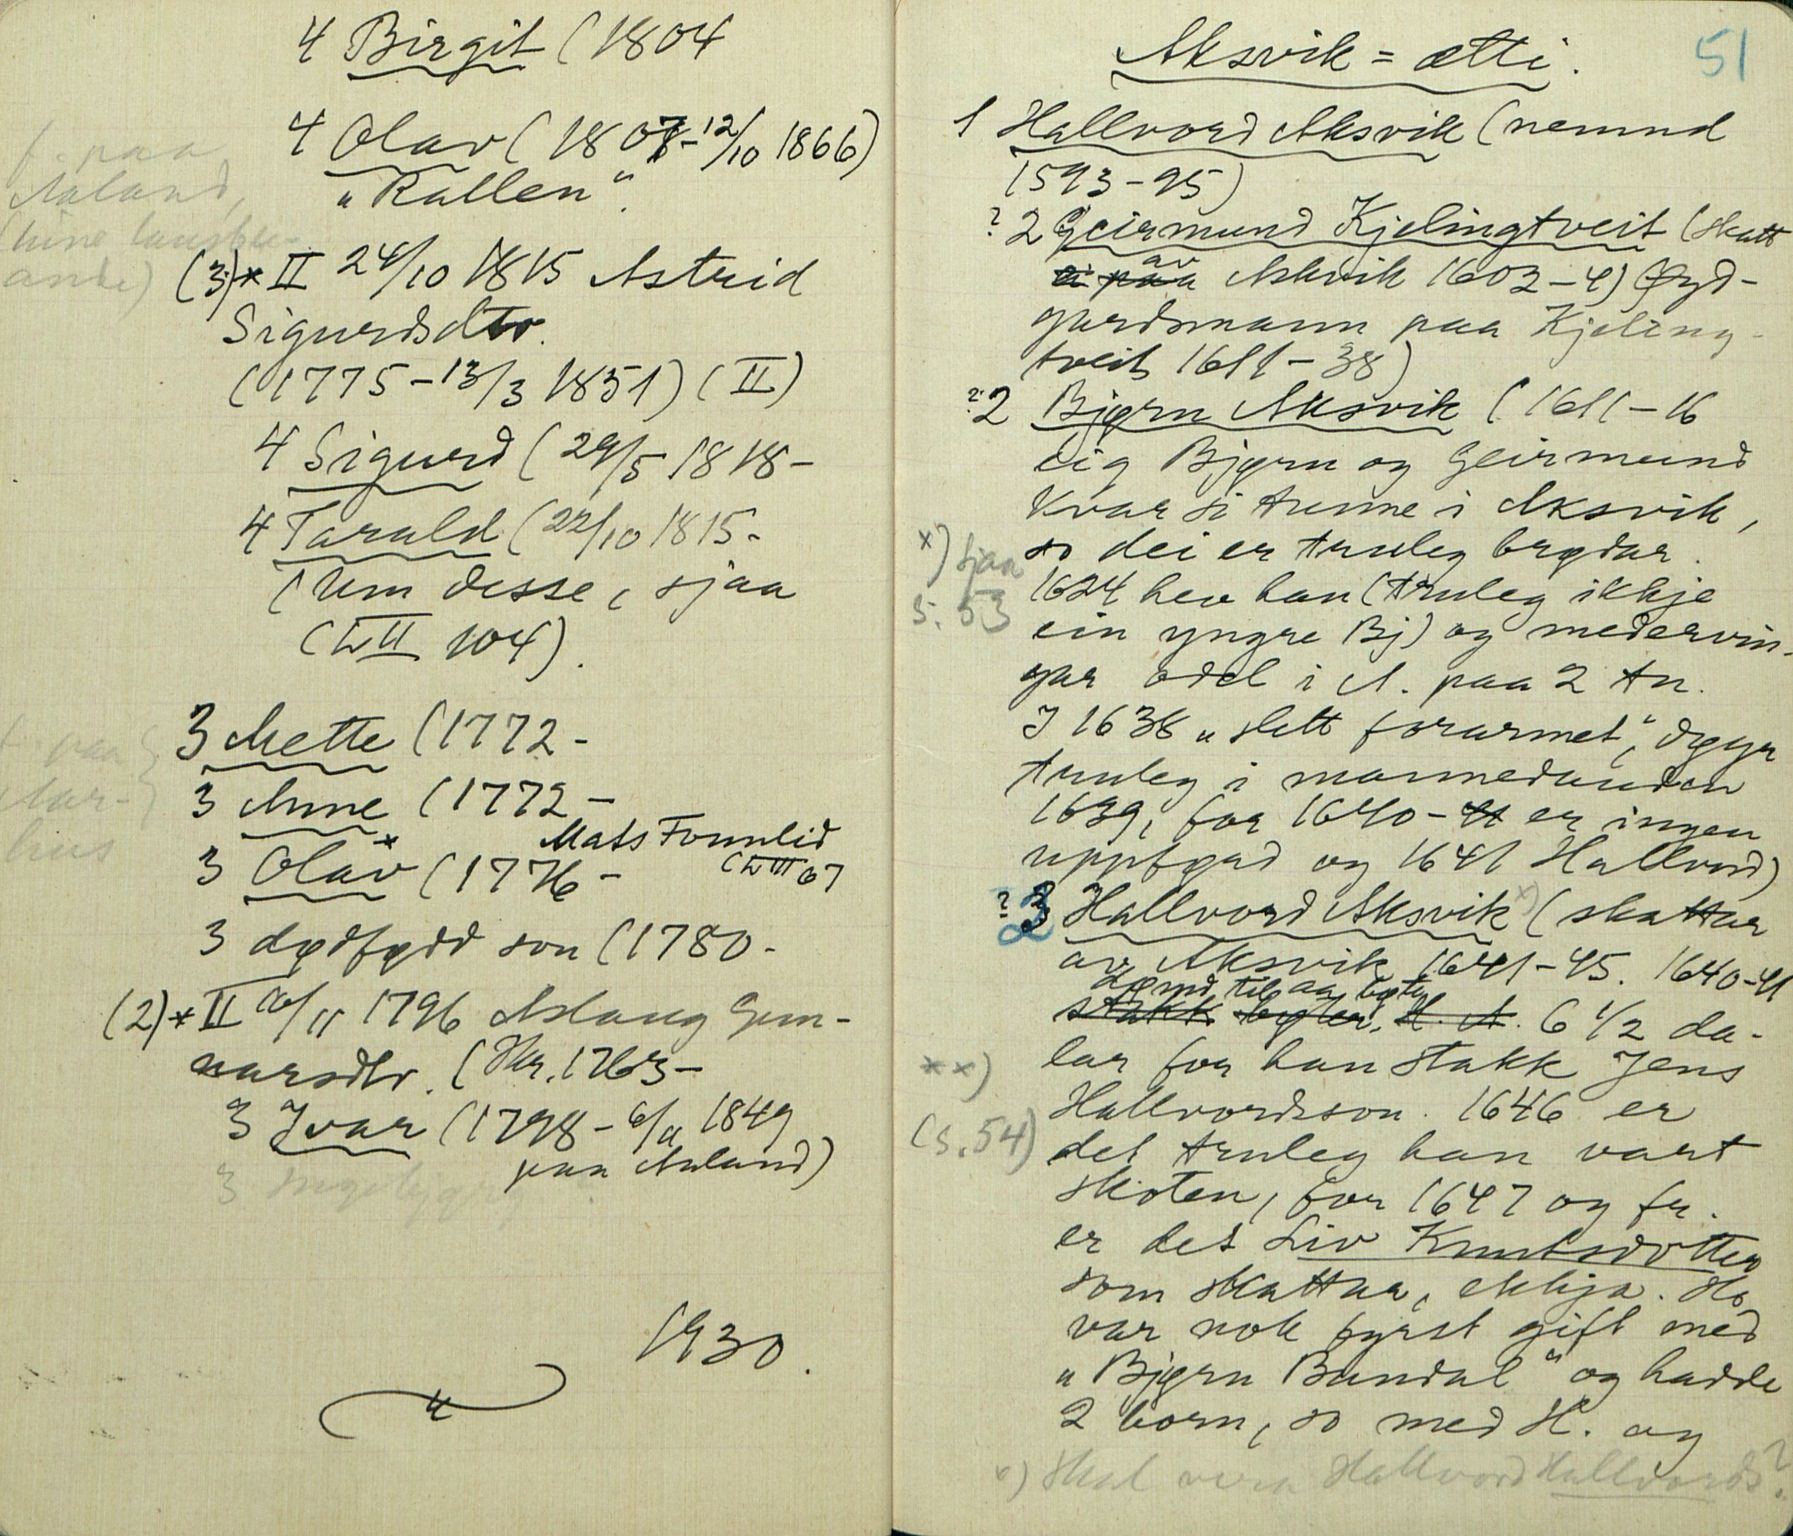 4 Birgit (1804
4 Olav (1807-12/10 1866)
"Kallen".
(3)* II 24/10 1815 Astrid
Sigurdsdtr.
(1775-13/3 1851) (II)
4 Sigurd (29/5 1818-
4 Tarald (22/10 1815-
(Um desse, sjaa
(LII 104).
3 Mette (1772-
3 Anne (1772-
Mats Fonnlid
(LIII 67
3 Olav* (1776-
3 dødfødd son (1780-
(2)* II 10/11 1796 Aslaug Gun-
narsdtr. (Skr. 1763-
3 Ivar (1798-6/4 1849
paa Aaland)
3 Ingebjørg
f. paa
Aaland,
ande)
f. paa
Aar-
hus
1930.
51
Aksvik=ætti.
1 Hallvord Aksvik (nemnd
1593-95)
? 2 Geirmund Kjelingtveit (skatt
av
Askvik 1603-4) Øyd-
gardsmann paa Kjeling-
tveit 1611-38)
? 2 Bjørn Aksvik (1611-16
eig Bjørn og Geirmund
kvar si tunne i Aksvik,
so dei er truleg brødar.
x) sjaa
s. 53
1624 hev han (truleg ikkje
ein yngre Bj) og medervin-
gar odel i A. paa 2 tn.
I 1638 "slett forarmet", døyr
truleg i mannedauden
1639, for 1640-41 er ingen
uppførd og 1641 Hallvord)
? 3 Hallvord Aksvik x) (skattar
av Aksvik 1641-45. 1640-41
dømd til aa bøta
stakk H. A. 6 1/2 da-
xx)
lar for han stakk Jens
Hallvordsson. 1646 er
(s. 54)
det truleg han vart
skoten, for 1647 og fr.
er det Liv Knutsdotter
som skattar, ekkja. Ho
var nok fyrst gift med
"Bjørn Bundal" og hadde
2 born, so med H. og
x) Skal vera Hallvord Hallvords?